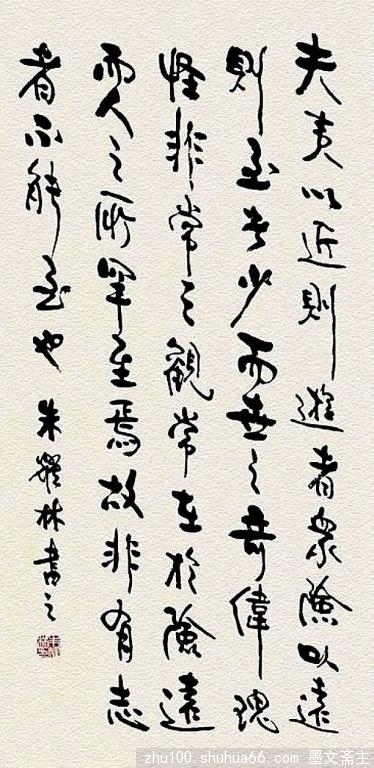 夫夷以近則遊者衆險以遠
則至者少而世之奇偉瑰
怪非常之觀常在於險遠
而人之所罕至焉故非有志
者不能至也 朱耀林書之
zhu100.shuhua66.com 墨文斋主